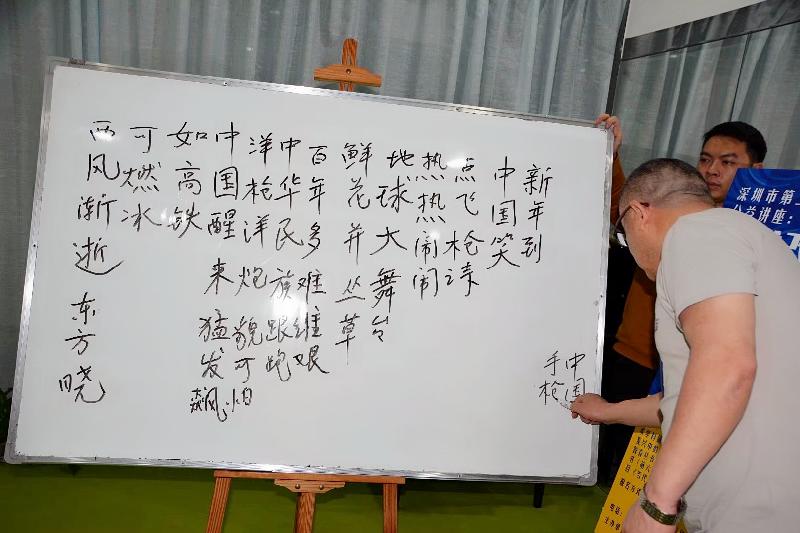 新年到
中国笑
点飞枪
热热闹闹
地球大舞台
鲜花并丛草
百年多难维艰
中华民族
洋枪洋炮貌可怕
中国醒来猛发飙
如高铁
可燃冰
西风渐逝东方晓
中国
手枪
深圳市第
公益讲座：